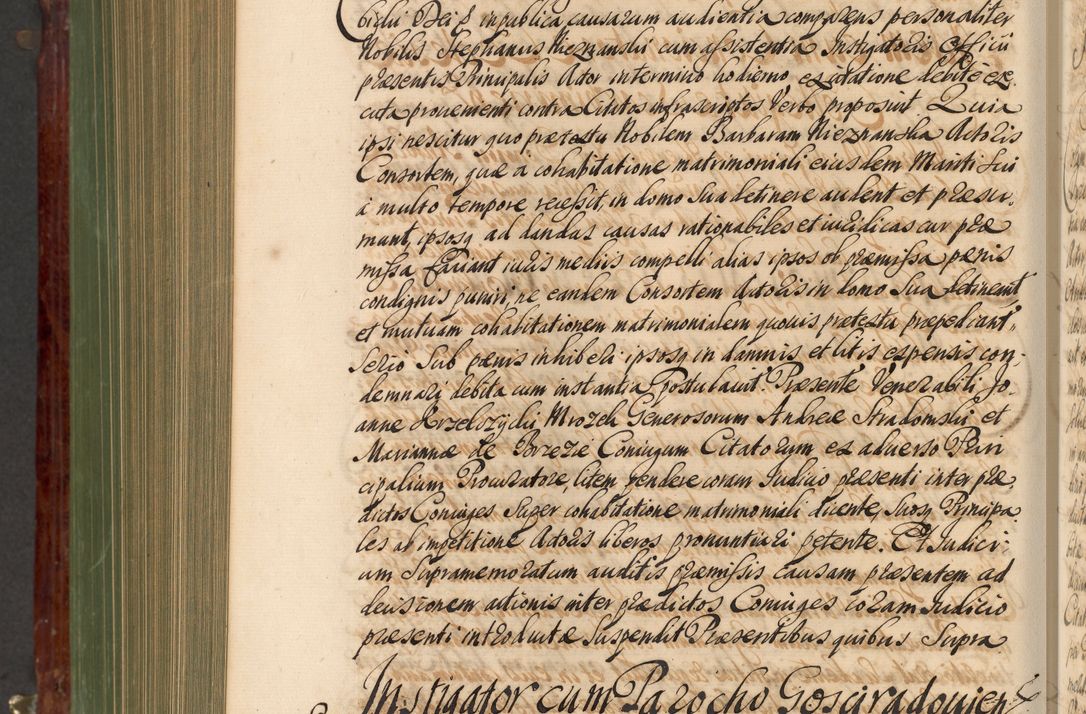 bidii Dei g in publica causarum audientia comparens personaliter
Nobilis Stephanus Niezvanski cum assistentia Instigatoris Officii
præsentis Principalis Actor in termino hodierno, ex citatione debite exe
cuta proveniente contra Citatos infrascriptos Verbo proposuit Quia
ipsi nescitur quo prætextu Nobilem Barbaram Niezvanska Actoris
Consortem, quæ a cohabitatione matrimoniali eiusdem Mariti sui
a multo tempore recessit, in domo sua detinere audent et præsu-
munt, ipsosq ad dandas causas rationabiles et iuridicas cur præ
missa faciant iuris mediis compelli alias ipsos ob præmissa pænis
condignis puniri, ne eandem Consortem Actoris in domo sua detineant
et mutuam cohabitationem matrimonialem quovis prætextu præpediant,
serio sub pænis inhiberi ipsosq in damnis et litis expensis con-
demnari debita cum instantia postulavit Præsente Venerabili Jo-
anne Krzelozycki Mrozek Generosorum Andreæ Stradomski et
Mariannæ de Brzezie Coniugum Citatorum ex adverso Prin
cipalium Procuratore, litem pendere coram Iudicio præsenti inter præ
dictos Coniuges super cohabitatione matrimoniali dicente, suosq Principa
les ab impetitione Actoris liberos pronuntiari petente. Et Iudici-
um supramemoratum auditis præmissis causam præsentem ad
decisionem actionis inter prædictos Coniuges coram Iudicio
præsenti introductæ suspendit Præsentibus quibus supra
Instigator cum Parocho Gosciradovien